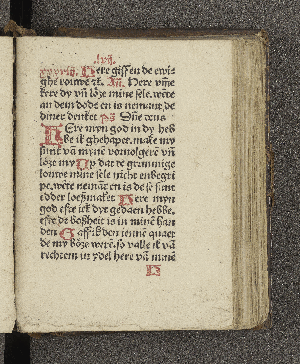 here giff en de ewi
ghe rouwe
kere dy vñ löze mine sele. wēte
an dein dode en is nemant de
diner dencket
Ere myn god in dy heb
be ik ghehapet. make my
sunt vā mynē vorvolgerē vñ
löze my Op dat de grimmige
louwe mine sele nicht enbegri
pe. wēte nemāt en is de se sunt
edder loeszmaket Here myn
god efte ick dyt gedaen hebbe.
efte de boßheit is in mine han
den Gaff ik den iennē quaet
de my böze werē. so valle ik vā
rechtem in ydel here vā minē